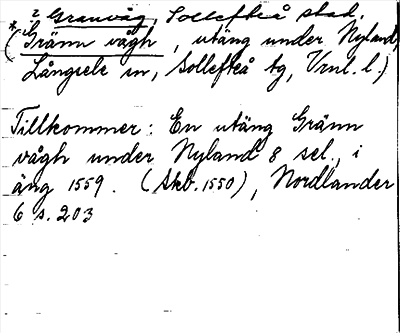 ? Granvåg, Sollefteå stad.
*(Gränn vågh, utäng under Nyland,
Långsele sn, Sollefteå tg, Vrnl. l.)
Tillkommer: En utäng Gränn
vågh under Nyland 8 sel., i
äng 1559. (Skb. 1550), Nordlander
6 s. 203